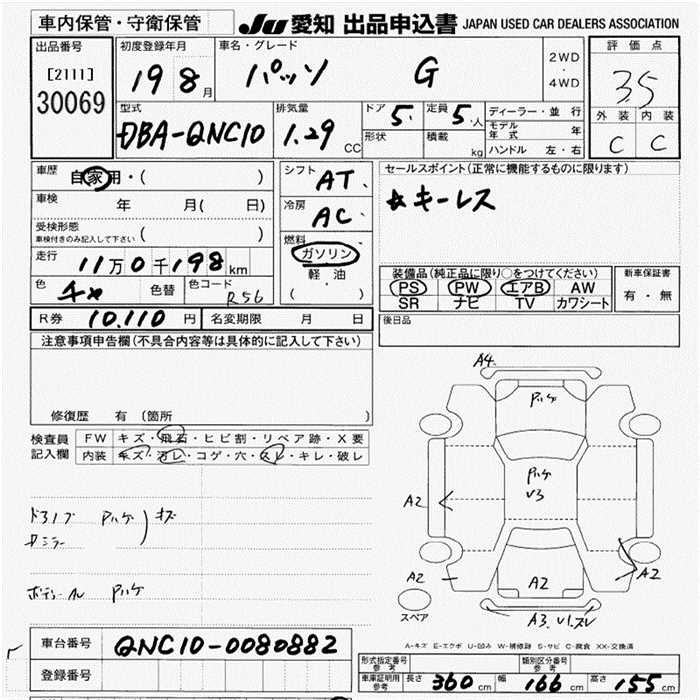 車内保管・守衛保管
JU 愛知 出品申込書 JAPAN USED CAR DEALERS ASSOCIATION
出品番号
[2111]
30069
初度登録年月
19 8 月
車名・グレード
パッソ G
2WD
・
4WD
評価点
3.5
外装 内装
C C
型式
DBA-QNC10
排気量
1.29 CC
ドア
5.
定員
5.人
形状
積載
kg
ディーラー・並行
モデル年式 年
ハンドル 左・右
車歴
自家用・( )
車検 年 月( 日)
受検形態
車検付きのみ記入して下さい ( )
走行
11万0千198km
色
色替
色コード
R56
シフト
AT.
冷房
AC.
燃料
ガソリン
軽油
( )
セールスポイント(正常に機能するものに限ります)
☆キーレス
装備品(純正品に限り○をつけてください)
PS PW エアB AW
SR ナビ TV カワシート
新車保証書
有・無
R券 10,110 円
名変期限 月 日
後日品
注意事項申告欄(不具合内容等は具体的に記入して下さい)
修復歴 有(箇所 )
検査員
記入欄
FW キズ・飛石・ヒビ割・リペア跡・X要
内装 キズ・汚レ・コゲ・穴・スレ・キレ・破レ
ドアノブ Pハゲ ) キズ
ミラー
Pハゲ
A4.
Pハゲ
Pハゲ
V3
A2
A2
A2
A2
A3.V1.スレ
スペア
A-キズ E-エクボ U-凹み W-補修跡 S-サビ C-腐食 XX-交換済
車台番号
QNC10-0080882
登録番号
形式指定番号
参考
類別区分番号
参考
車庫証明用
参考
長さ 360 cm 幅 166 cm 高さ 155 cm